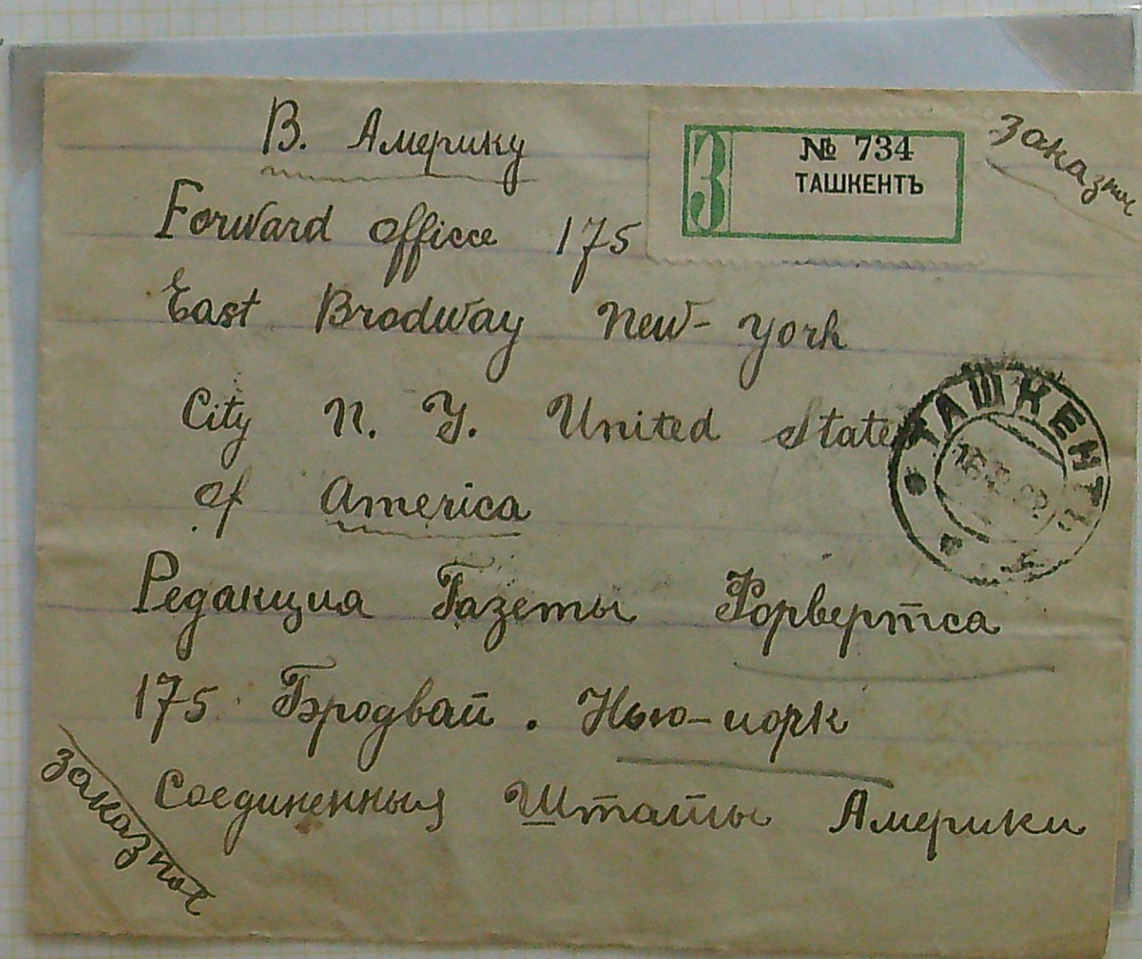 В. Америку
З
№ 734
ТАШКЕНТЪ
Forward officce 175
East Brodway New-York
City N. Y. United State
of America
ТАШКЕНТЪ
Редакция Газеты Форвертса
175 Бэродвай. Нью-иорк
Соединенныя Штаты Америки
заказное